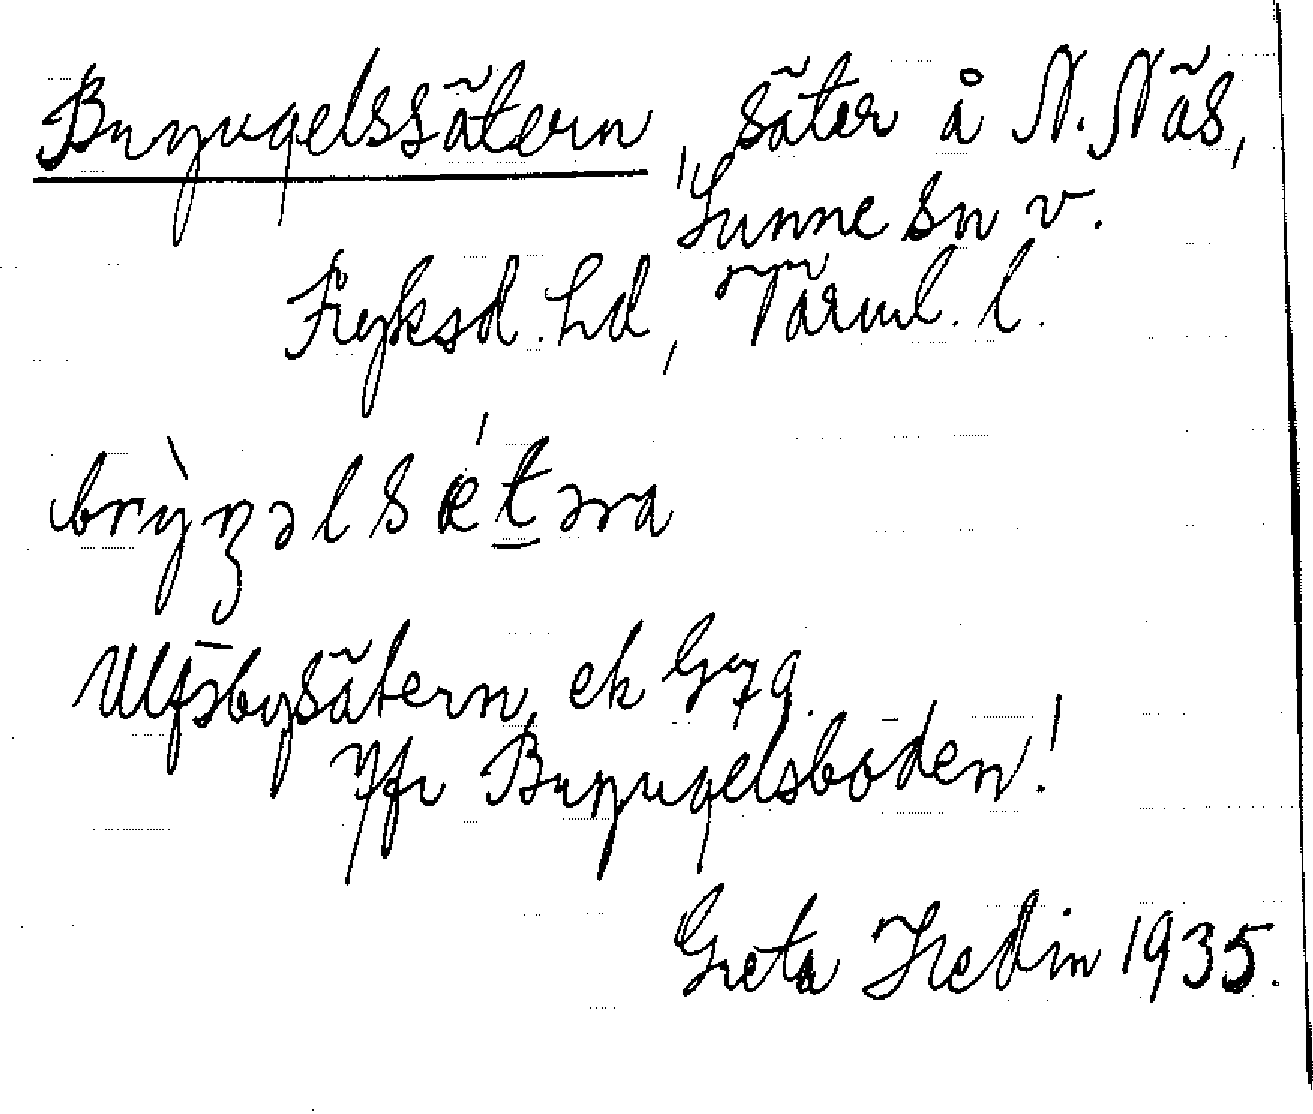 Bryngelssätern, säter å N. Näs,
Sunne sn v.
Fryksd. hd, Värml. l.
brỳŋəlsǽt̲əra
Ulfsbysätern, ek G79.
Jfr Bryngelsboden!
Greta Hedin 1935.